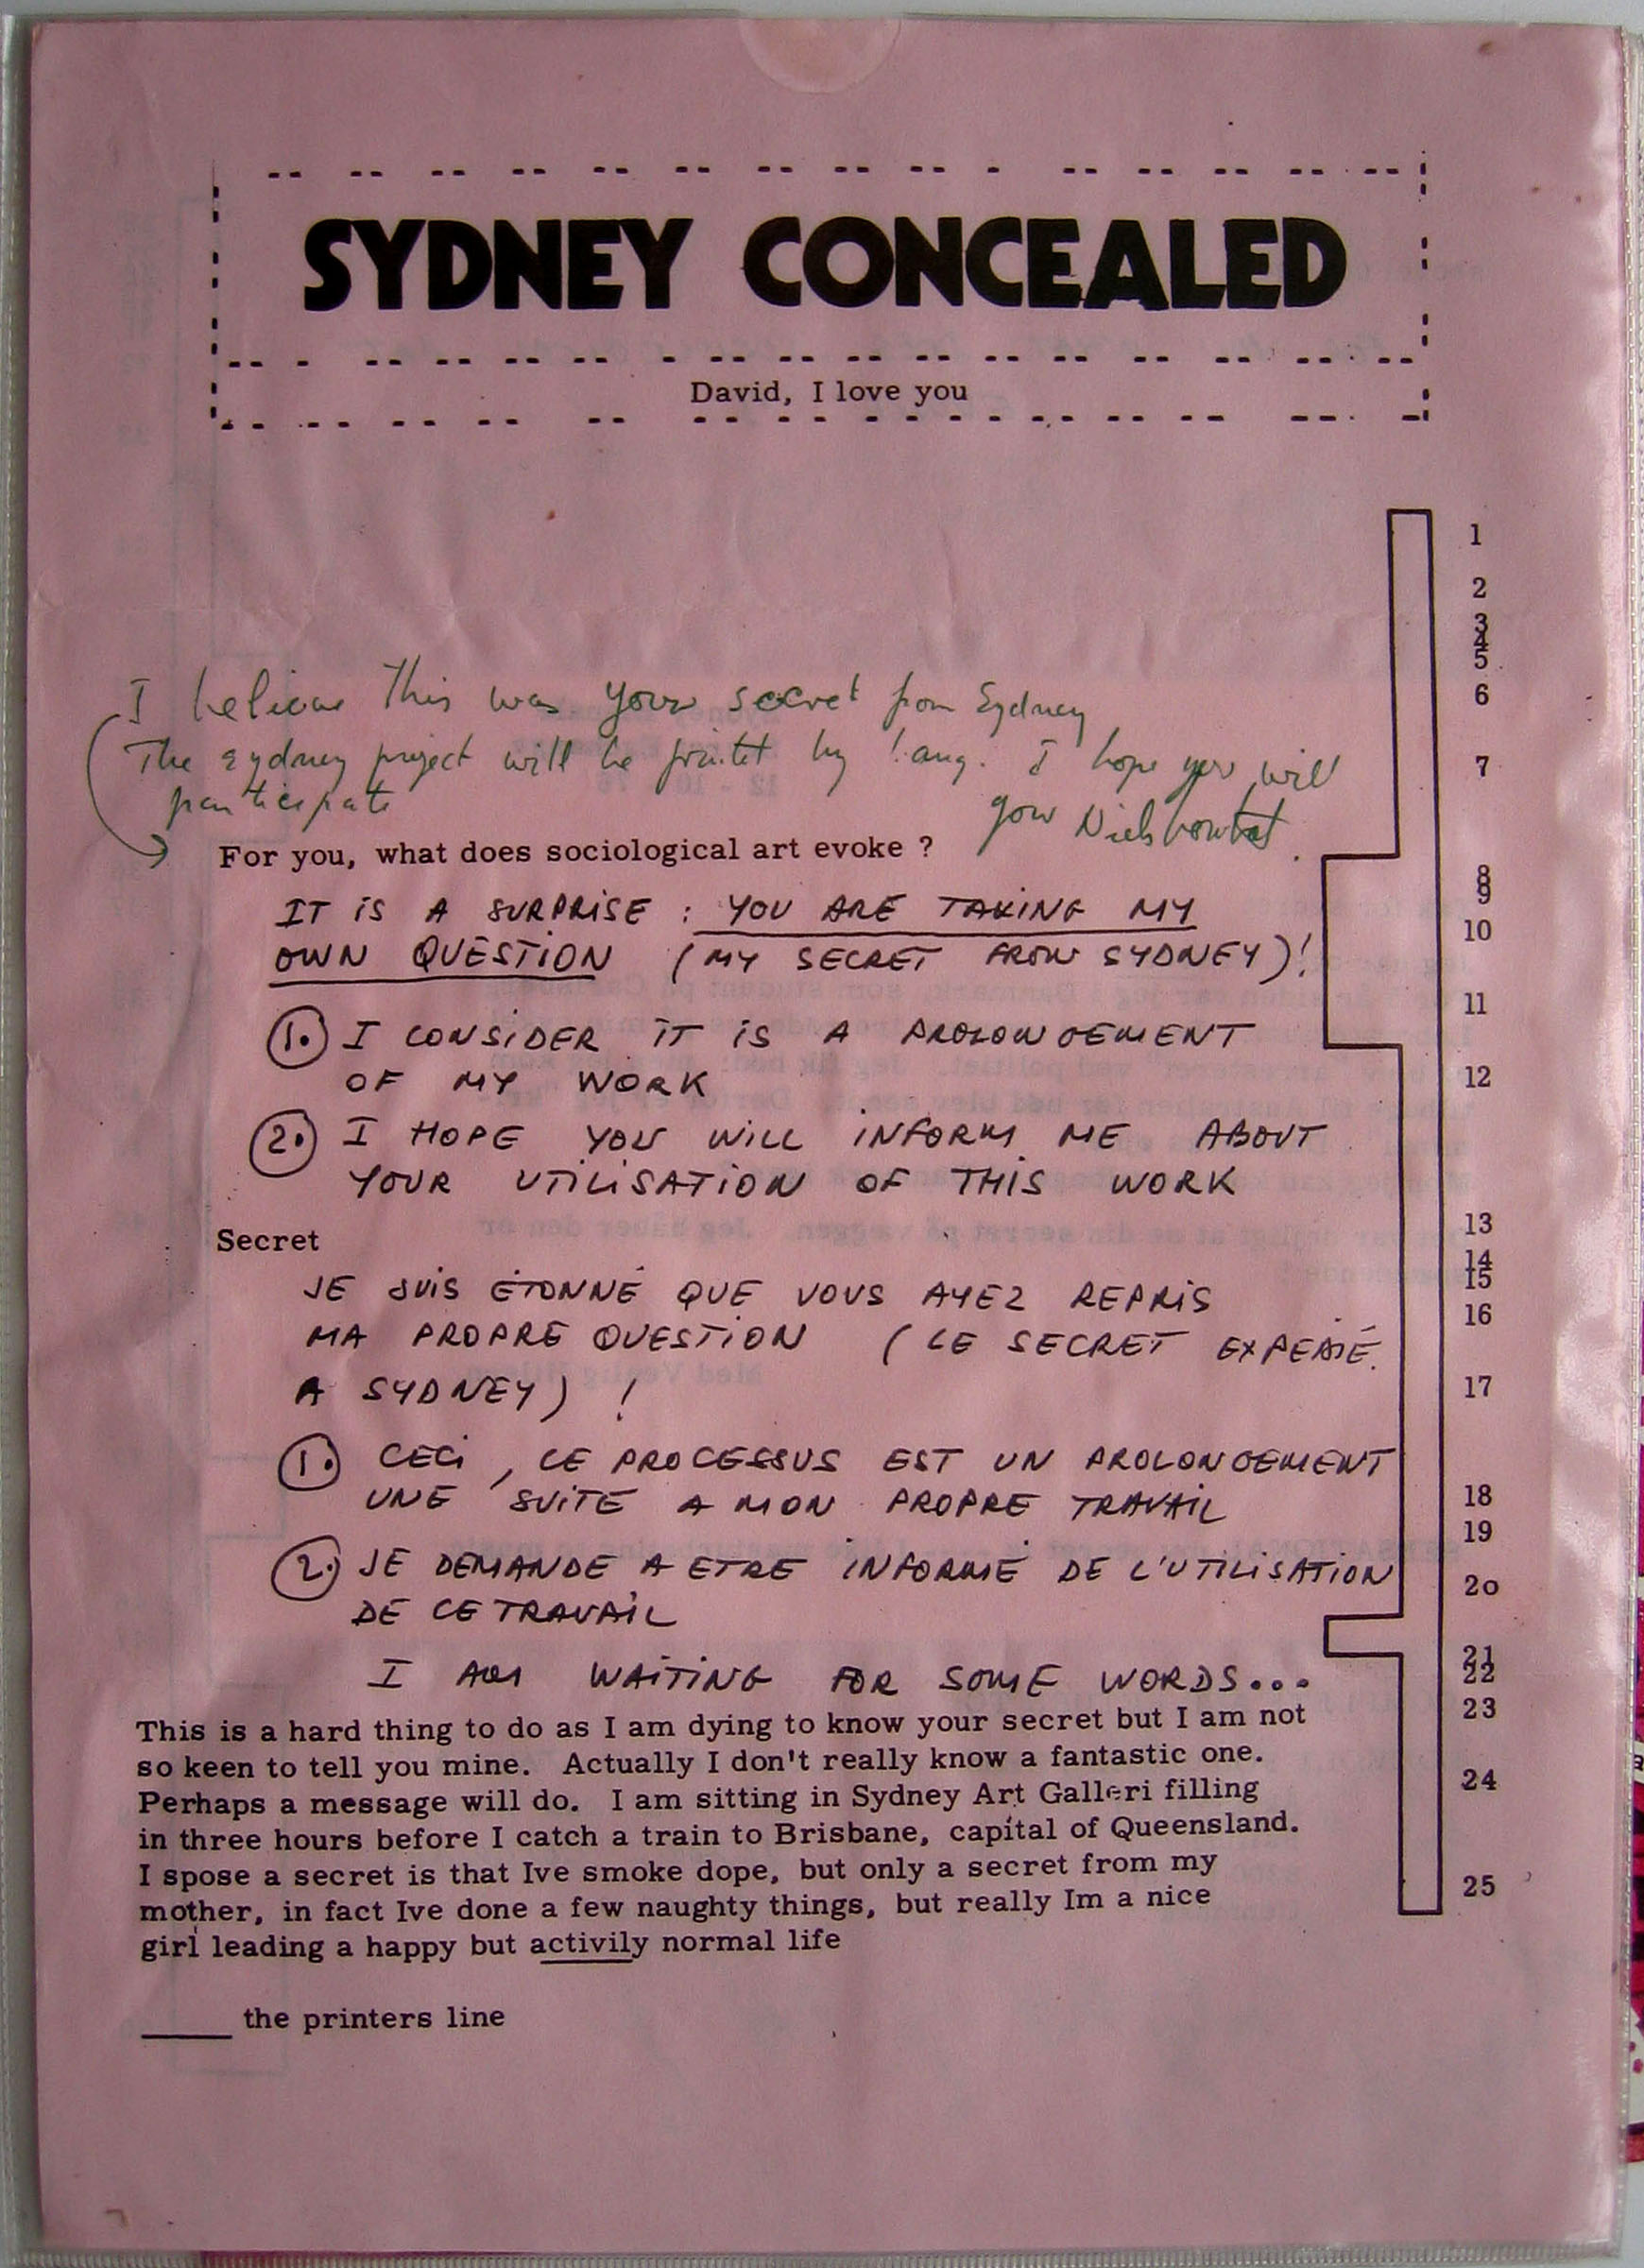 SYDNEY CONCEALED
David, I love you
1
2
3
4
5
6
7
8
9
10
11
12
13
14
15
16
17
18
19
20
21
22
23
24
25
I believe This was your secret from Sydney
The sydney project will be printet by I hope you will
participate
your Niels
For you, what does sociological art evoke ?
IT iS A SURPRiSE : YOU ARE TAKING MY
OWN QUESTiON (MY SECRET FROM SYDNEY)!
1. I CONSiDER iT iS A PROLONGEMENT
OF MY WORK
2. I HOPE YOU WiLL iNFORM ME ABOUT
YOUR UTiLiSATiON OF THIS WORK
Secret
JE SUiS ÉTONNÉ QUE VOUS AYEZ REPRiS
MA PROPRE QUESTiON (LE SECRET
A SYDNEY) !
1. CECi, CE PROCESSUS EST UN PROLONGEMENT
UNE SUiTE A MON PROPRE TRAVAiL
2. JE DEMANDE A ETRE iNFORMÉ DE L'UTiLiSATiON
DE CE TRAVAiL
I AM WAiTiNG FOR SOME WORDS...
This is a hard thing to do as I am dying to know your secret but I am not
so keen to tell you mine. Actually I don't really know a fantastic one.
Perhaps a message will do. I am sitting in Sydney Art Galleri filling
in three hours before I catch a train to Brisbane, capital of Queensland.
I spose a secret is that Ive smoke dope, but only a secret from my
mother, in fact Ive done a few naughty things, but really Im a nice
girl leading a happy but activily normal life
_____ the printers line